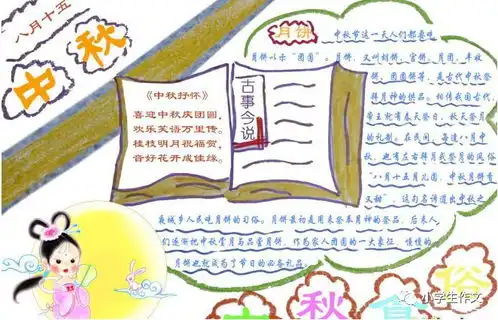 八月十五
中秋
《中秋抒怀》
喜迎中秋庆团圆,
欢乐笑语万里传。
桂枝明月祝福贺,
音好花开成佳缘。
古事今说
月饼
中秋节这一天人们都要吃
月饼以示“团圆”。月饼,又叫胡饼、宫饼、月团、丰收
饼、团圆饼等,是古代中秋祭
拜月神的供品。相传我国古代,
帝王就有春天祭日、秋天祭月
的礼制。在民间,每逢八月中
秋,也有左右拜月或祭月的风俗
“八月十五月儿圆,中秋月饼香
又甜”,这句名谚道出中秋之
夜城乡人民吃月饼的习俗。月饼最初是用来祭奉月神的祭品,后来人
们逐渐把中秋赏月与品尝月饼,作为家人团圆的一大象征,慢慢的
月饼也就成为了节日的必备礼品。
秋 食 俗
小学生作文